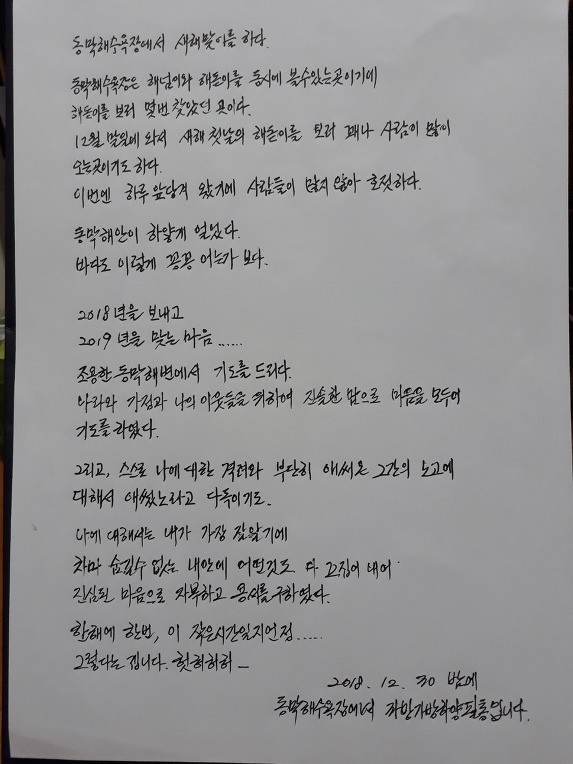 동막해수욕장에서 새해맞이를 하다.
동막해수욕장은 해넘이와 해돋이를 동시에 볼수있는곳이기에
해돋이를 보러 몇번 찾았던 곳이다.
12월 말일에 와서 새해 첫날의 해돋이를 보러 꽤나 사람이 많이
오는곳이기도 하다.
이번엔 하루 앞당겨 왔기에 사람들이 많지 않아 호젓하다.
동막해안이 하얗게 얼었다.
바다도 이렇게 꽁꽁 어는가 보다.
2018년을 보내고
2019년을 맞는 마음......
조용한 동막해변에서 기도를 드리다.
나라와 가정과 나의 이웃들을 위하여 진솔한 맘으로 마음을 모두어
기도를 하였다.
그리고, 스스로 나에 대한 격려와 부단히 애써온 그간의 노고에
대해서 애썼노라고 다독이기도.
나에 대해서는 내가 가장 잘알기에
차마 숨길수 없는 내안에 어떤것도 다 끄집어 내어
진심된 마음으로 자복하고 용서를구하였다.
한해에 한번, 이 작은시간일지언정.....
그렇다는 겁니다. 헛허허허_
2018. 12. 30 밤에
동막해수욕장에서 하양필통입니다.